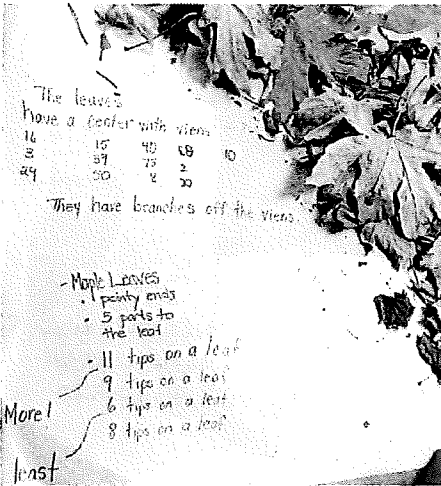 The leaves
have a center with viens
16 15 40 68 10
3 39 75 2
29 50 8 20
They have branches off the viens
- Maple Leaves
• pointy ends
• 5 parts to
the leaf
• 11 tips on a leaf
9 tips on a leaf
More! 6 tips on a leaf
8 tips on a leaf
least